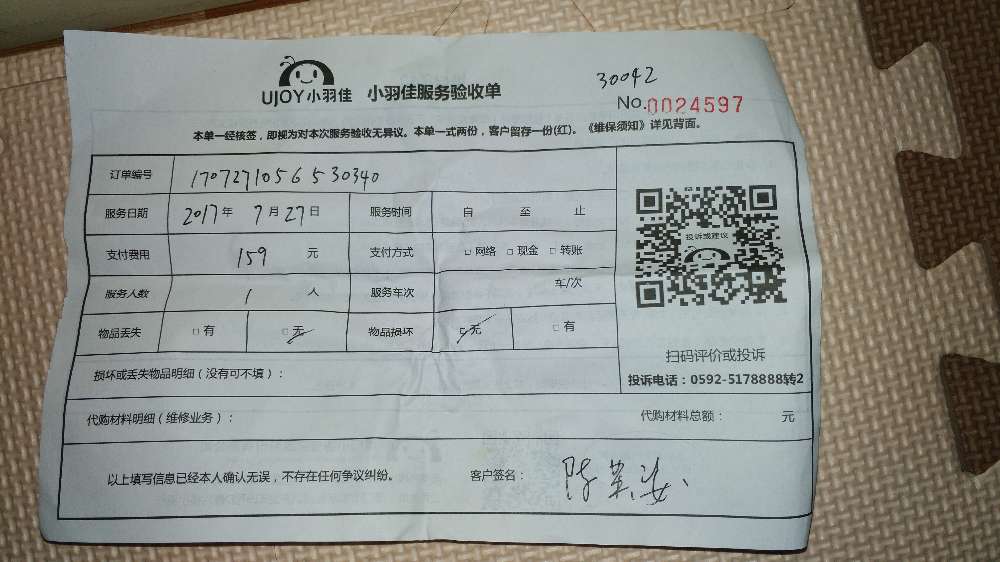 UJOY小羽佳 小羽佳服务验收单
30042
No.0024597
本单一经核签，即视为对本次服务验收无异议。本单一式两份，客户留存一份(红)。《维保须知》详见背面。
订单编号 1707271056530340
服务日期 2017年 7月27日 服务时间 自 至 止
支付费用 159 元 支付方式 □网络 □现金 □转账
服务人数 1 人 服务车次 车/次
物品丢失 □有 □无 物品损坏 □无 □有
投诉或建议
扫码评价或投诉
投诉电话：0592-5178888转2
损坏或丢失物品明细（没有可不填）：
代购材料明细（维修业务）： 代购材料总额： 元
以上填写信息已经本人确认无误，不存在任何争议纠纷。 客户签名： 陈